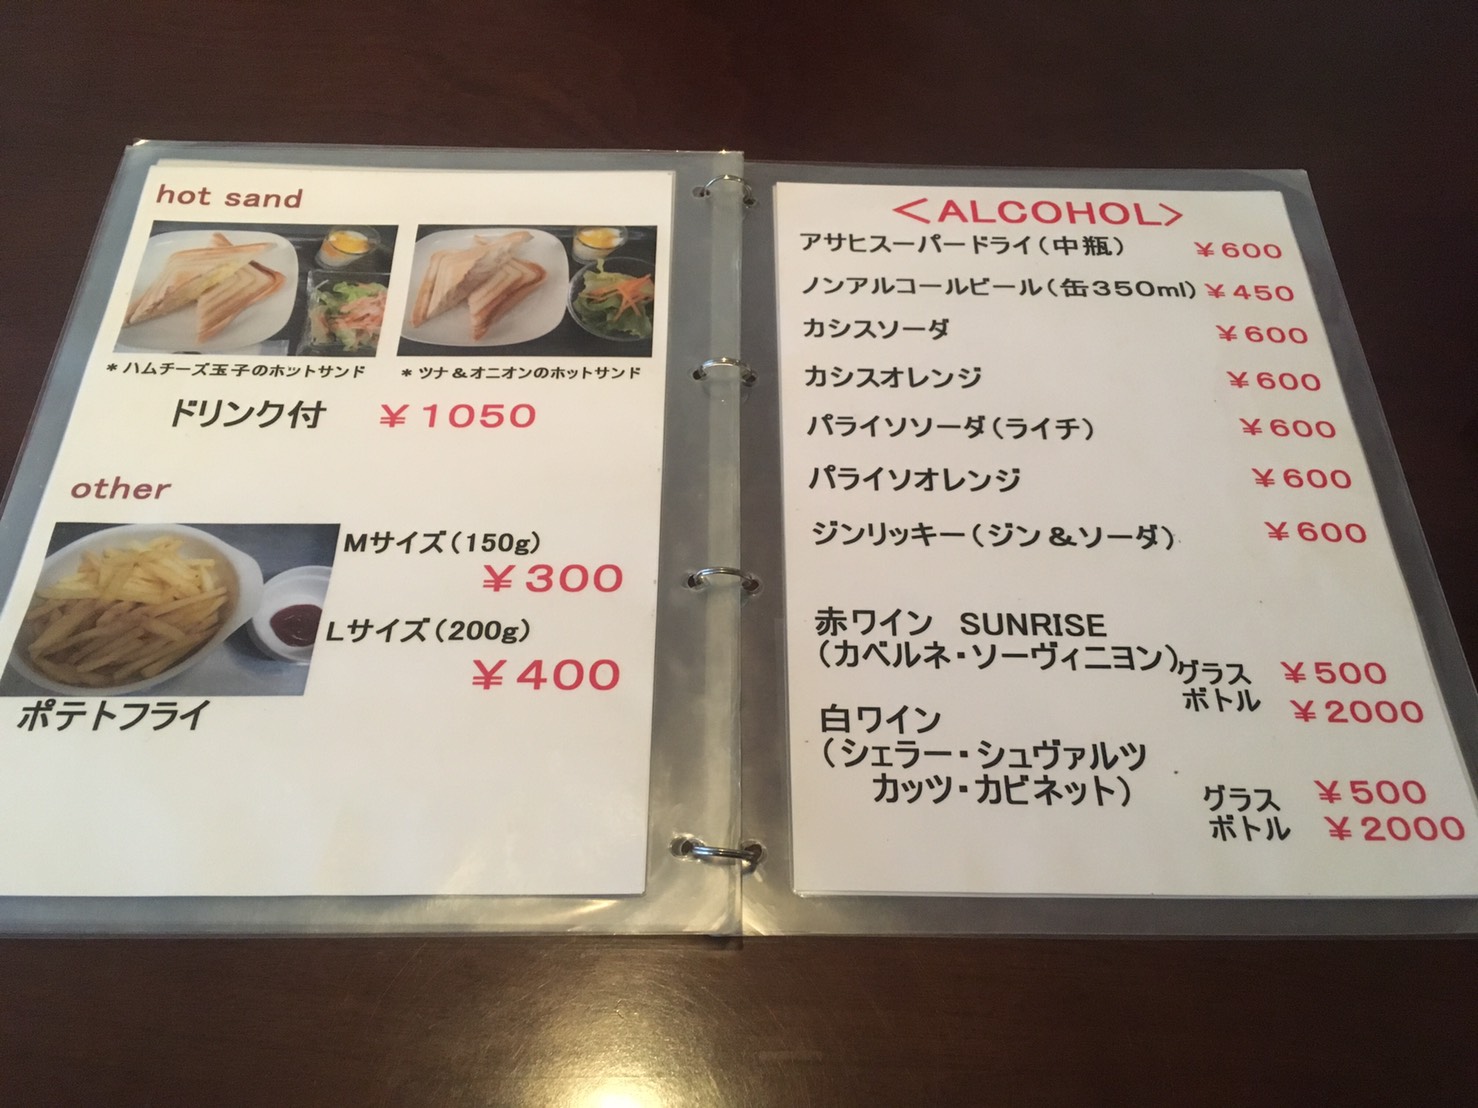 hot sand
*ハムチーズ玉子のホットサンド
*ツナ&オニオンのホットサンド
ドリンク付 ¥1050
other
Mサイズ(150g)
¥300
Lサイズ(200g)
¥400
ポテトフライ
<ALCOHOL>
アサヒスーパードライ(中瓶) ¥600
ノンアルコールビール(缶350ml) ¥450
カシスソーダ ¥600
カシスオレンジ ¥600
パライソソーダ(ライチ) ¥600
パライソオレンジ ¥600
ジンリッキー(ジン&ソーダ) ¥600
赤ワイン SUNRISE
(カベルネ・ソーヴィニヨン)
グラス ¥500
ボトル ¥2000
白ワイン
(シェラー・シュヴァルツ
カッツ・カビネット)
グラス ¥500
ボトル ¥2000